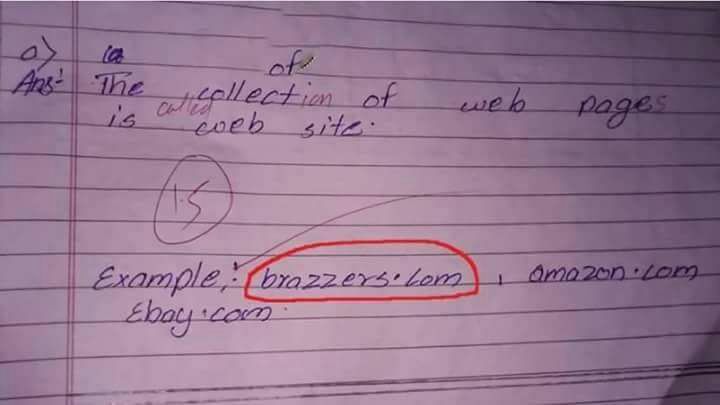 a)
of
Ans: The collection of web pages
is called web site.
1.5
Example,: brazzers.com, amazon.com
Ebay.com.